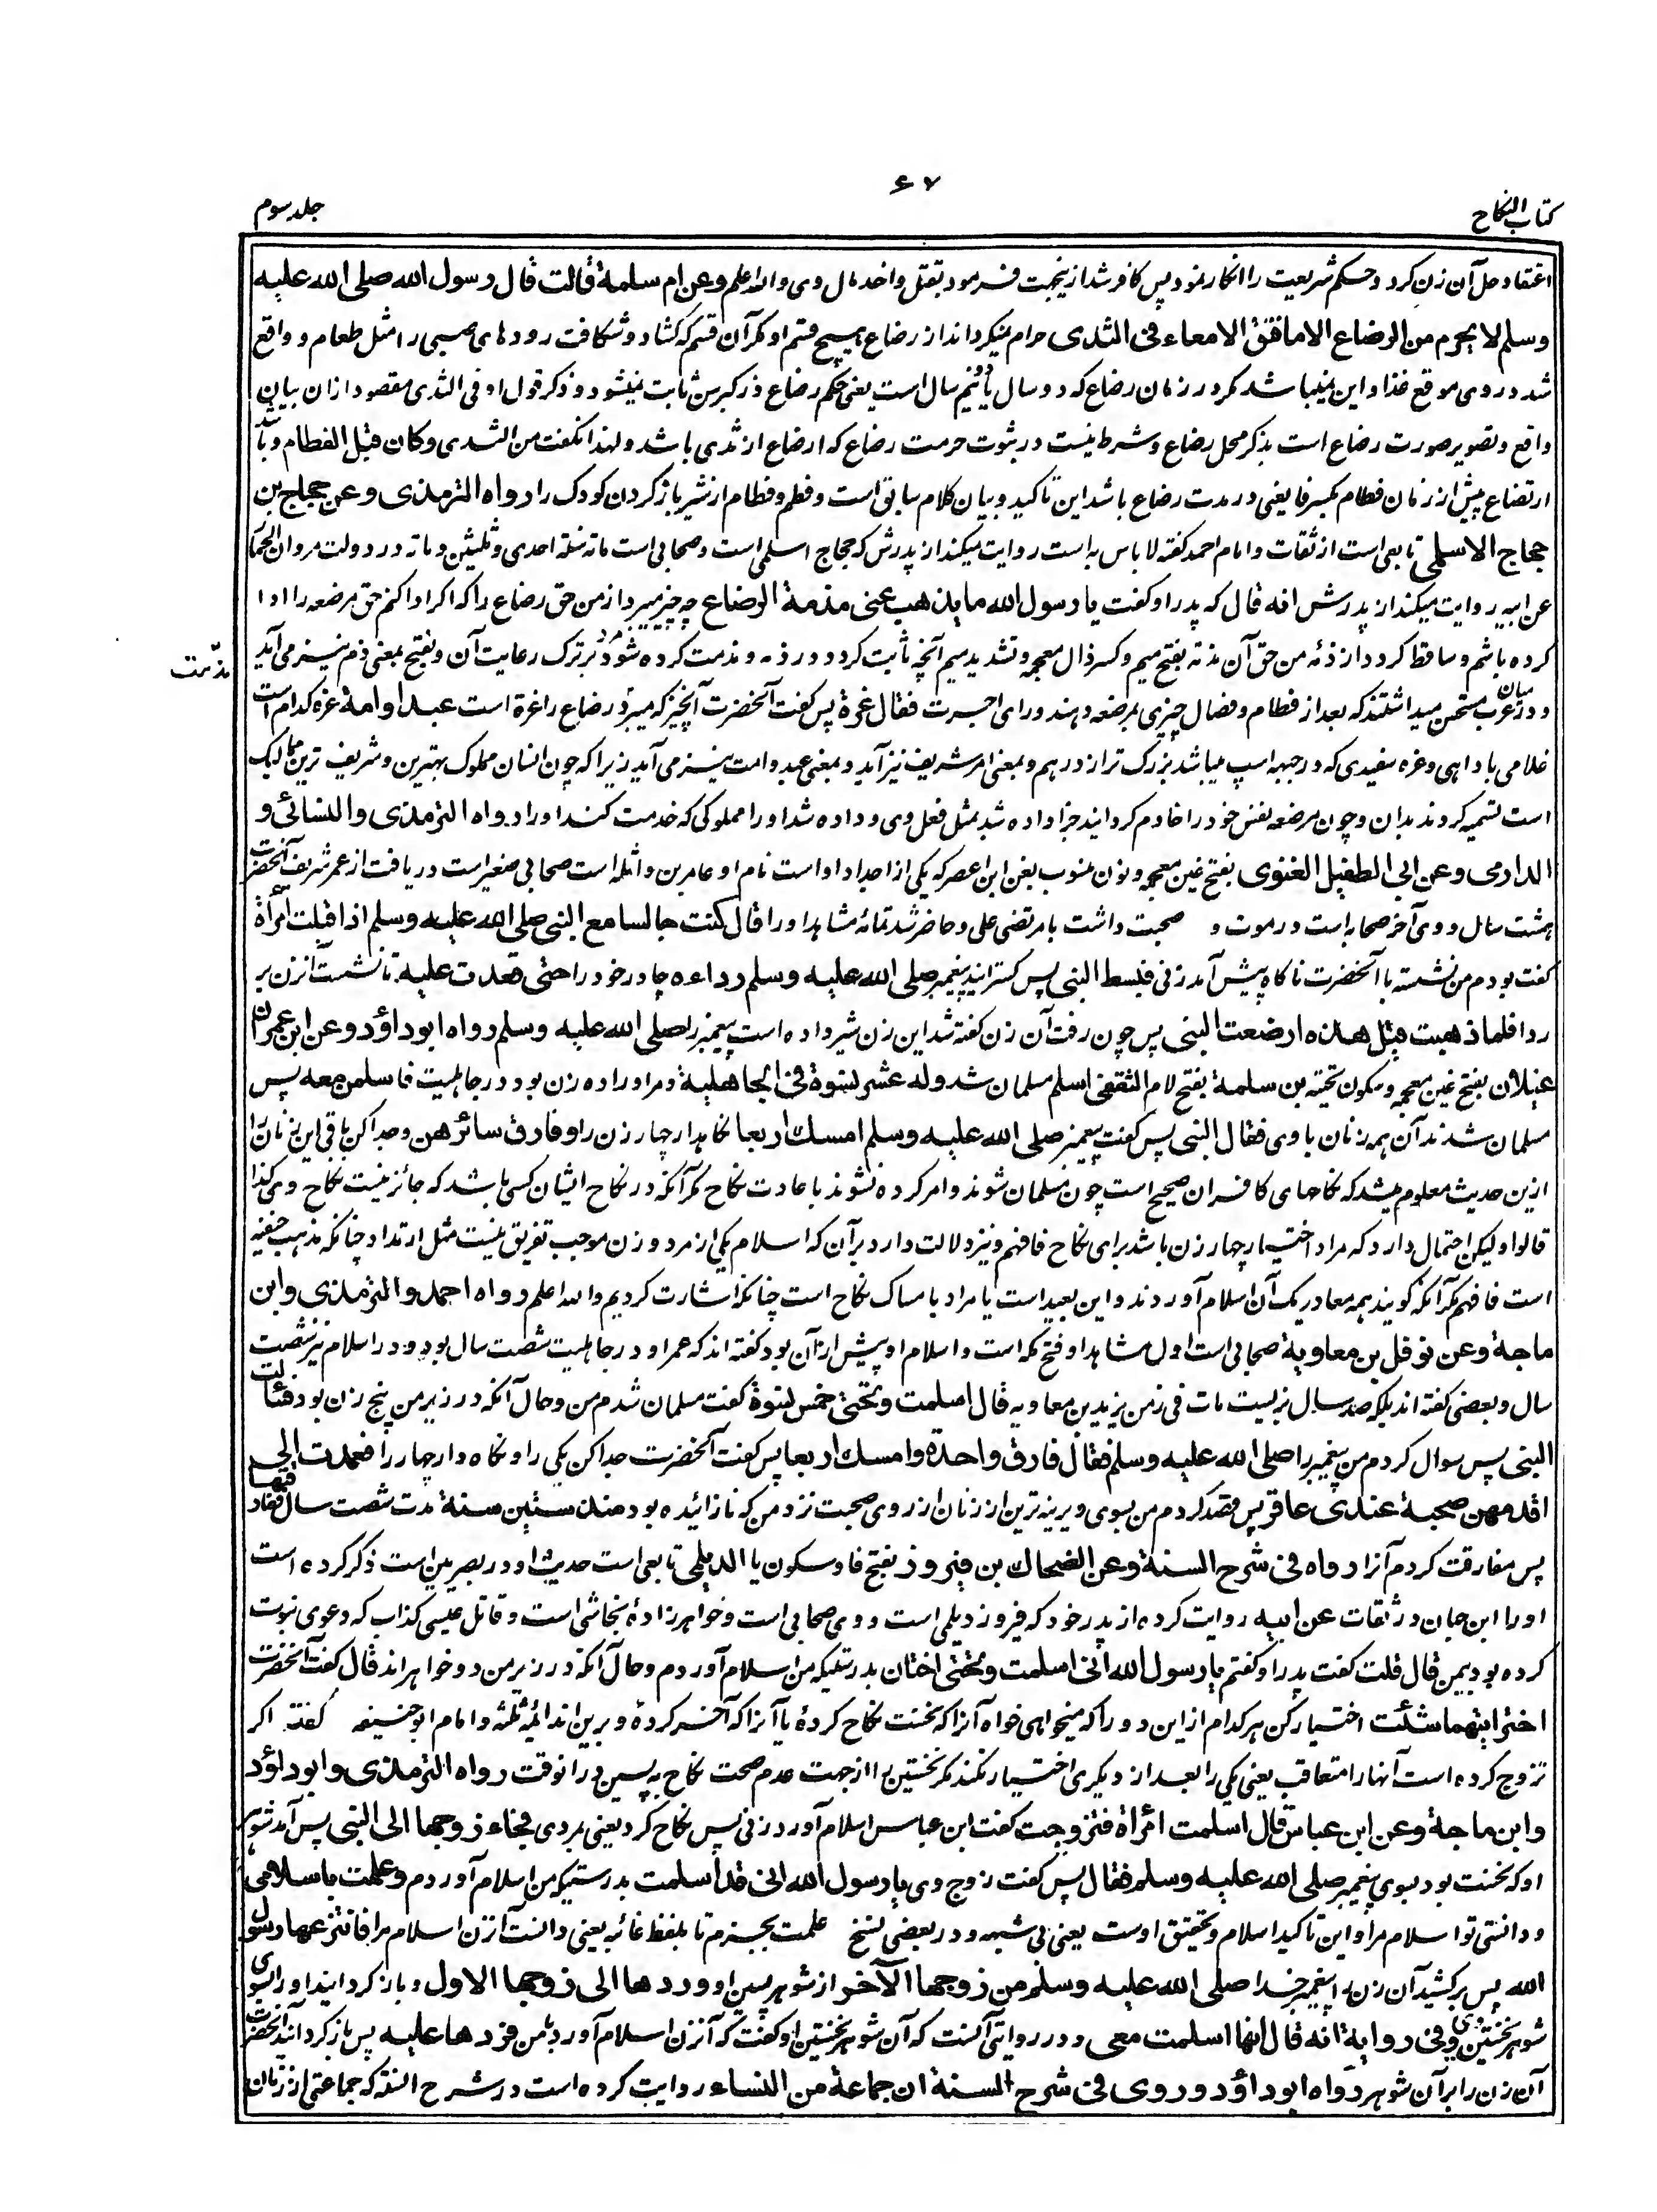 ۶۷
کتاب النکاح
جلد سوم
اعتقاد حل آن زن کرد و حکم شریعت را انکار نمود پس کافر شد ازینجهت فرمود بقتل واخذ مال وی والله اعلم وعن ام سلمة قالت قال رسول الله صلی الله علیه
وسلم لا یحرم من الرضاع الا ما فتق الامعاء فی الثدی حرام نمیگرداند از رضاع هیچ قسم او مگر آن قسم که کشاد و شکافت رودهای صبی را مثل طعام و واقع
شد در وی موقع غذا و این نمیباشد مگر در زمان رضاع که دو سال یا دو نیم سال است یعنی حکم رضاع در کبر سن ثابت نمیشود و ذکر قول او فی الثدی مقصود ازان بیان
واقع و تصویر صورت رضاع است بذکر محل رضاع و شرط نیست در ثبوت حرمت رضاع که ارضاع از ثدی باشد ولهذا نگفت من الثدی وکان قبل الفطام و باشد
ارتضاع پیش از زمان فطام بکسر فا یعنی در مدت رضاع باشد این تاکید و بیان کلام سابق است و فطم و فطام از شیر باز کردن کودک را رواه الترمذی وعن حجاج بن
حجاج الاسلمی تابعی است از ثقات و امام احمد گفته لا باس به است روایت میکند از پدرش که حجاج اسلمی است و صحابی است مات سنة احدی وثلثین ومائة در دولت مروان الحمار
عن ابیه روایت میکند از پدرش انه قال که پدر او گفت یا رسول الله ما یذهب عنی مذمة الرضاع چه چیز میبرد از من حق رضاع را که اگر ادا کنم حق مرضعه را ادا
کرده باشم و ساقط گردد از ذمه من حق آن مذمه بفتح میم و کسر ذال معجمه و تشدید میم آنچه ثابت گردد در ذمه و مذمت کرده شود مرد بر ترک رعایت آن و بفتح بمعنی ذم نیز می آید
مذمت
و در میان عرب مستحسن میداشتند که بعد از فطام و فصال چیزی بمرضعه دهند ورای اجرت فقال غرة پس گفت آنحضرت آنچیز که میبرد رضاع را غرة است عبد او امة غره کدام است
غلامی یا داهی و غره سفیدی که در جبهه اسپ میباشد بزرگ تر از درهم و بمعنی امر شریف نیز آید و بمعنی عبد و امت نیز می آید زیرا که چون انسان مملوک بهترین و شریف ترین ممالیک
است تسمیه کردند بدان و چون مرضعه نفس خود را خادم گردانید جزا داده شد بمثل فعل وی و داده شد او را مملوکی که خدمت کند او را رواه الترمذی والنسائی و
الدارمی وعن ابی الطفیل الغنوی بفتح غین معجمه و نون منسوب بغن ابن اعصر که یکی از اجداد او است نام او عامر بن واثله است صحابی صغیر است دریافت از عمر شریف آنحضرت
هشت سال و وی آخر صحابه است در موت و صحبت داشت با مرتضی علی و حاضر شد تمامه مشاهد او را قال کنت جالسا مع النبی صلی الله علیه وسلم اذا قبلت امرأة
گفت بودم من نشسته با آنحضرت ناگاه پیش آمد زنی فبسط النبی پس گسترانید پیغمبر صلی الله علیه وسلم رداءه چادر خود را حتی قعدت علیه تا نشست آنزن بر
ردا فلما ذهبت قیل هذه ارضعت النبی پس چون رفت آن زن گفته شد این زن شیر داده است پیغمبر را صلی الله علیه وسلم رواه ابو داؤد وعن ابن عمر ان
غیلان بفتح غین معجمه و سکون تحتیه بن سلمة بفتح لام الثقفی اسلم مسلمان شد وله عشر نسوة فی الجاهلیة و مر او را ده زن بود در جاهلیت فاسلمن معه پس
مسلمان شدند آن همه زنان با وی فقال النبی پس گفت پیغمبر صلی الله علیه وسلم امسك اربعا نگاهدار چهار زن را وفارق سائرهن و جدا کن باقی این زنان را
ازین حدیث معلوم میشد که نکاحهای کافران صحیح است چون مسلمان شوند و امر کرده نشوند باعادت نکاح مگر آنکه در نکاح ایشان کسی باشد که جائز نیست نکاح وی کذا
قالوا ولیکن احتمال دارد که مراد اختیار چهار زن باشد برای نکاح فافهم و نیز دلالت دارد برآن که اسلام یکی از مرد و زن موجب تفریق نیست مثل ارتداد چنانکه مذهب حنفیه
است فافهم مگر آنکه گویند همه معا در یک آن اسلام آوردند و این بعید است یا مراد بامساک نکاح است چنانکه اشارت کردیم والله اعلم رواه احمد والترمذی وابن
ماجة وعن نوفل بن معاویة صحابی است اول مشاهد او فتح مکه است و اسلام او پیش ازآن بود گفته اند که عمر او در جاهلیت شصت سال بود و در اسلام نیز شصت
سال و بعضی گفته اند بلکه صد سال بزیست مات فی زمن یزید بن معاویه قال اسلمت وتحتی خمس نسوة گفت مسلمان شدم من و حال آنکه در زیر من پنج زن بود فسألت
النبی پس سوال کردم من پیغمبر را صلی الله علیه وسلم فقال فارق واحدة وامسك اربعا پس گفت آنحضرت جدا کن یکی را و نگاه دار چهار را فعمدت الی
اقدمهن صحبة عندی عاقر پس قصد کردم من بسوی دیرینه ترین از زنان از روی صحبت نزد من که نازائیده بود منذ ستین سنة مدت شصت سال ففارقتها
پس مفارقت کردم آنرا رواه فی شرح السنة وعن الضحاك بن فیروز بفتح فا و سکون یا الدیلمی تابعی است حدیث او در بصریین است ذکر کرده است
او را ابن حبان در ثقات عن ابیه روایت کرده از پدر خود که فیروز دیلمی است و وی صحابی است و خواهرزادۀ نجاشی است و قاتل عیسی کذاب که دعوی نبوت
کرده بود بیمن قال قلت گفت پدر او گفتم یا رسول الله انی اسلمت وتحتی اختان بدرستیکه من اسلام آوردم و حال آنکه در زیر من دو خواهر اند قال گفت آنحضرت
اختر ایتهما شئت اختیار کن هر کدام از این دو را که میخواهی خواه آنرا که نخست نکاح کردۀ یا آنرا که آخر کردۀ و برین اند ائمۀ ثلثه و امام ابو حنیفه گفته اگر
تزوج کرده است آنها را متعاقب یعنی یکی را بعد از دیگری اختیار نکند مگر نخستین را از جهت عدم صحت نکاح پسین درا نوقت رواه الترمذی وابو داؤد
وابن ماجة وعن ابن عباس قال اسلمت امرأة فتزوجت گفت ابن عباس اسلام آورد زنی پس نکاح کرد یعنی بمردی فجاء زوجها الی النبی پس آمد شوهر
او که نخست بود بسوی پیغمبر صلی الله علیه وسلم فقال پس گفت زوج وی یا رسول الله انی قد اسلمت بدرستیکه من اسلام آوردم وعلمت باسلامی
و دانستی تو اسلام مرا و این تاکید اسلام و تحقیق اوست یعنی بی شبهه و در بعضی نسخ علمت بجزم تا بلفظ غائبه یعنی دانست آنزن اسلام مرا فانتزعها رسول
الله پس برکشید آن زن را پیغمبر خدا صلی الله علیه وسلم من زوجها الآخر از شوهر پسین او وردها الی زوجها الاول و باز گردانید او را بسوی
شوهر نخستین وی وفی روایة انه قال انها اسلمت معی و در روایتی آنست که آن شوهر نخستین او گفت که آنزن اسلام آورد با من فردها علیه پس باز گردانید آنحضرت
آن زن را برآن شوهر رواه ابو داؤد وروی فی شرح السنة ان جماعة من النساء روایت کرده است در شرح السنه که جماعتی از زنان